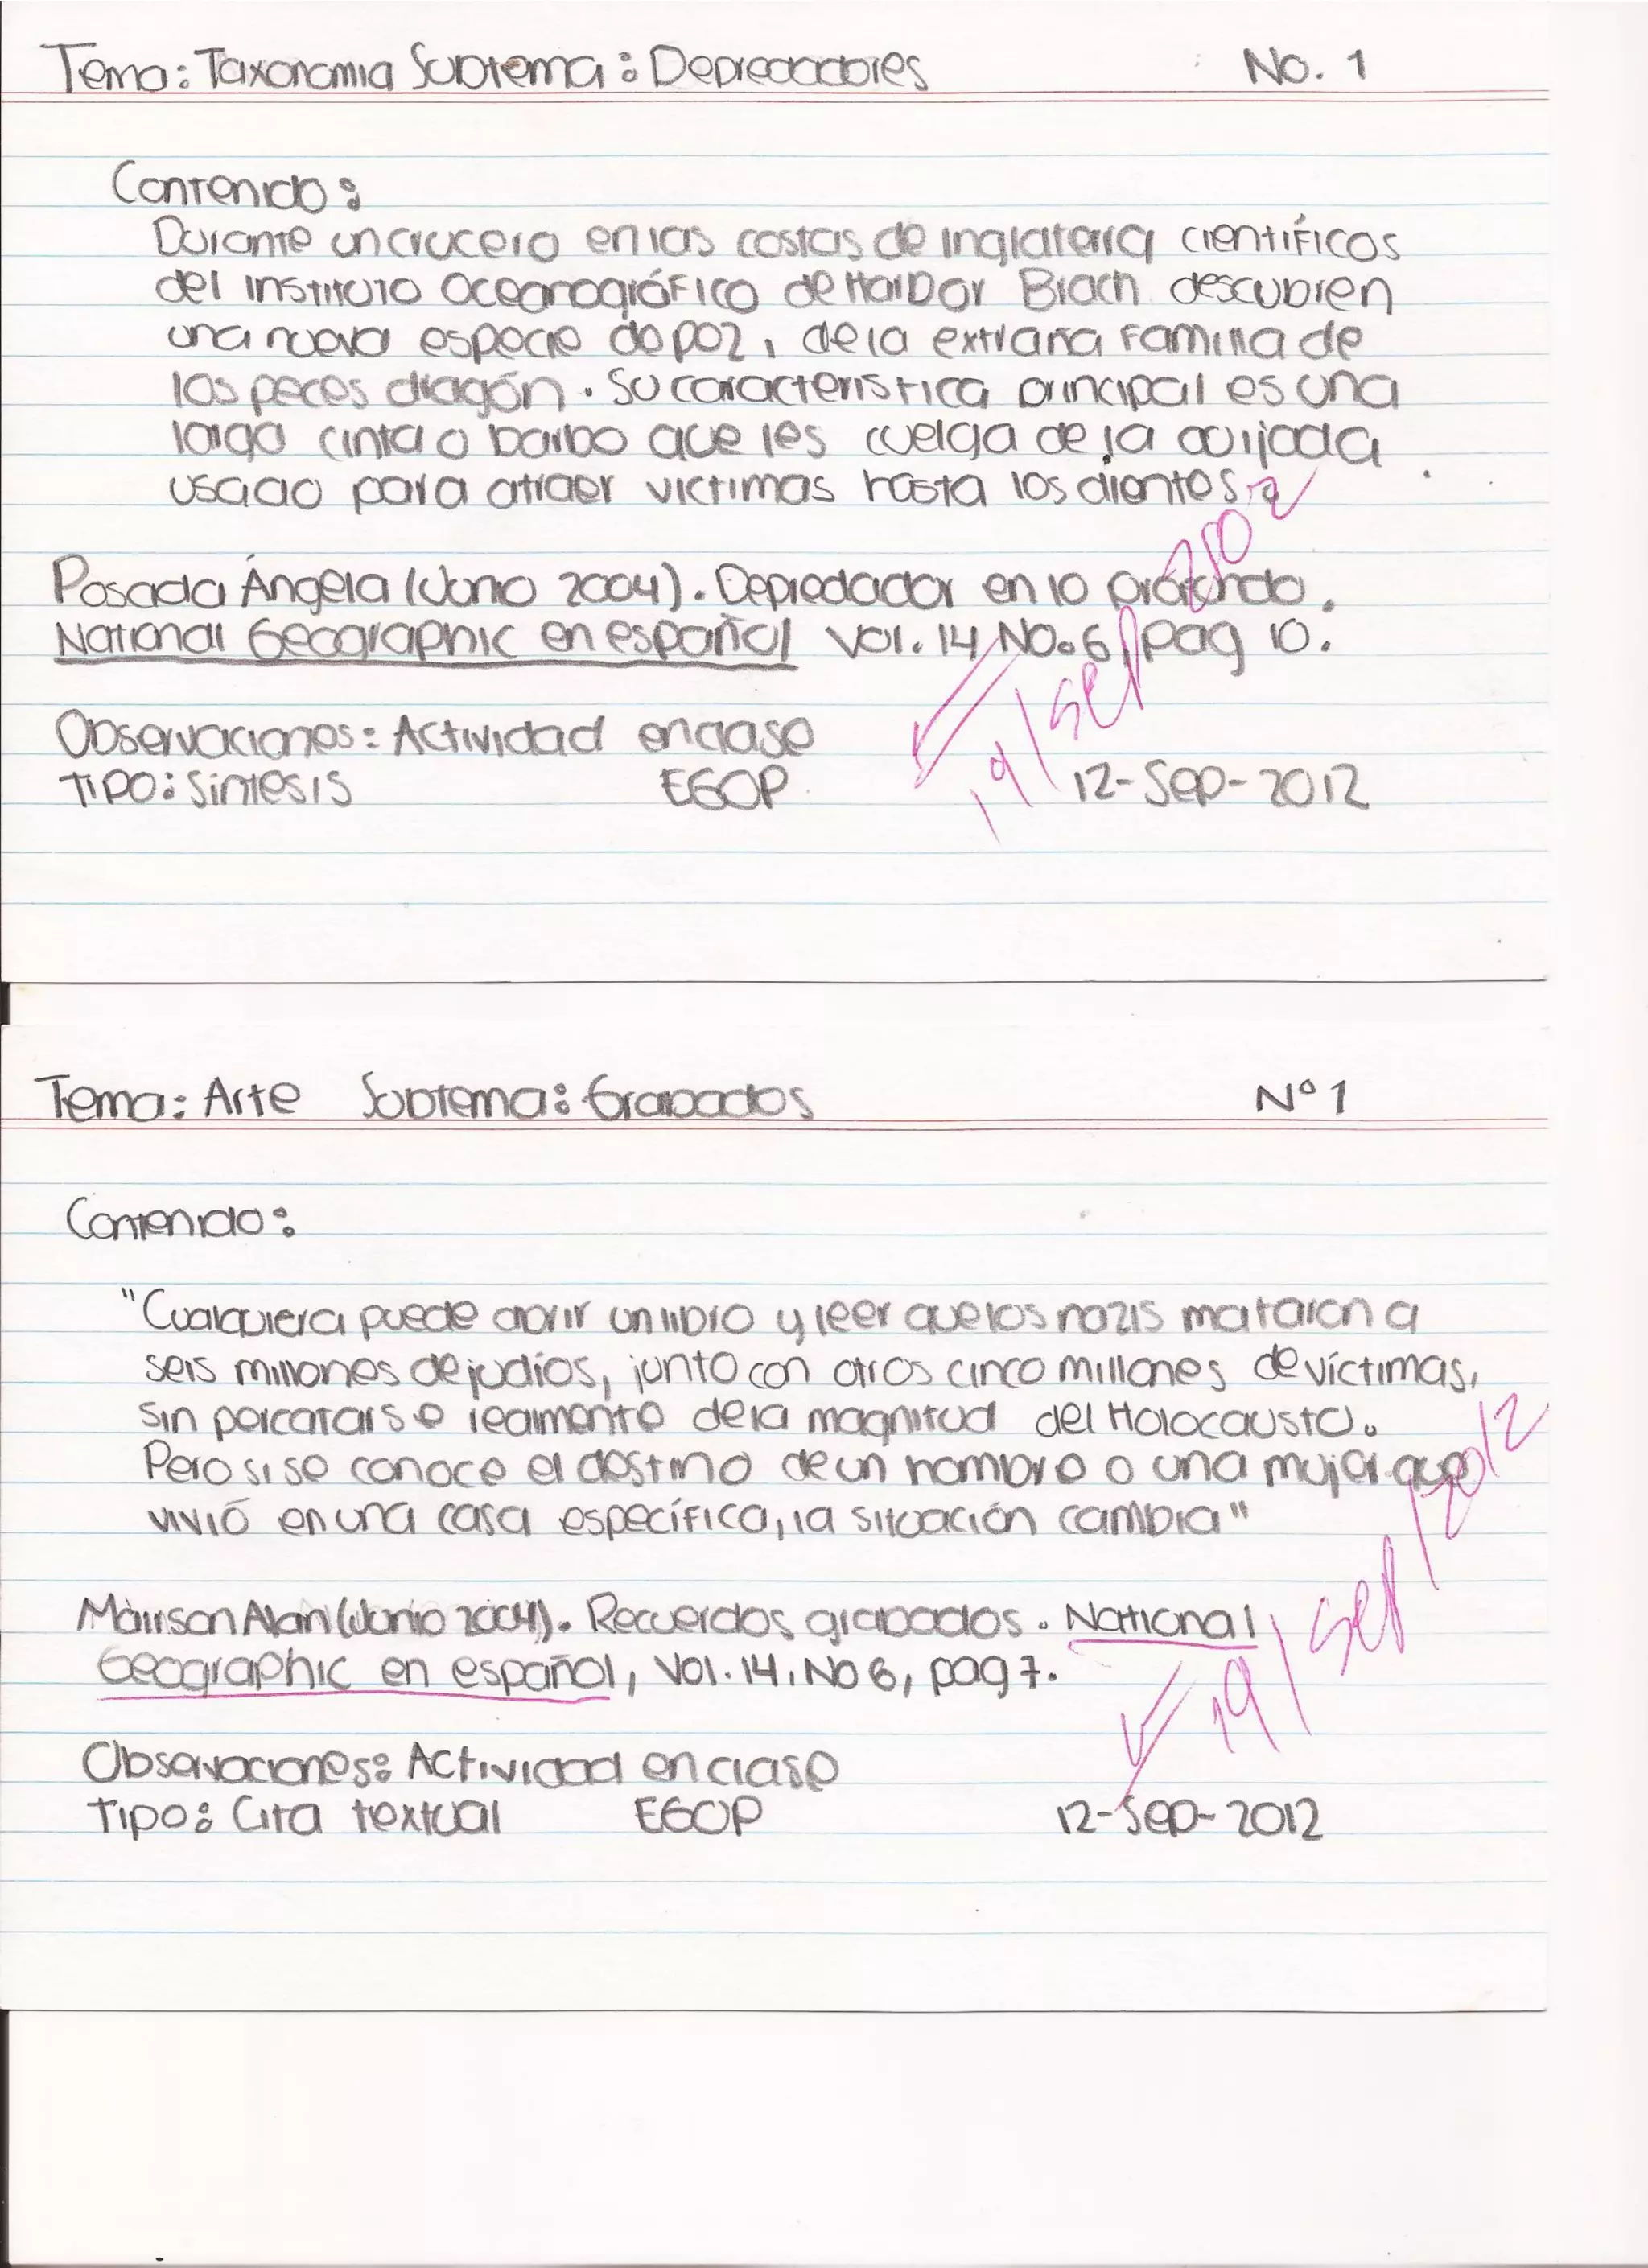 Tema: Taxonomia Subtema: Depredadores No. 1
Contenido:
Durante un crucero en las costas de Inglaterra científicos
del instituto Oceanográfico de Harbor Brach descubren
una nueva especie de pez, de la extraña familia de
los peces dragón. Su caracteristica principal es una
larga cinta o barbo que les cuelga de la quijada
usado para atraer victimas hasta los dientes.
Posada Ángela (Junio 2004). Depredador en lo profundo.
National Geographic en español Vol. 14 No. 6, pag 10.
19/sep/2102
Observaciones: Actividad en clase
TIPO: Sintesis EGOP 12-Sep-2012
Tema: Arte Subtema: Grabados N° 1
Contenido:
"Cualquiera puede abrir un libro y leer que los nazis mataron a
seis millones de judíos, junto con otros cinco millones de víctimas,
sin percatarse realmente de la magnitud del Holocausto.
Pero si se conoce el destino de un hombre o una mujer que
vivió en una casa específica, la situación cambia"
Mairson Alan (Junio 2004). Recuerdos grabados. National
Geographic en español, Vol. 14, No 6, pag 7.
19/sep/2012
Observaciones: Actividad en clase
Tipo: Cita textual EGOP 12-Sep-2012